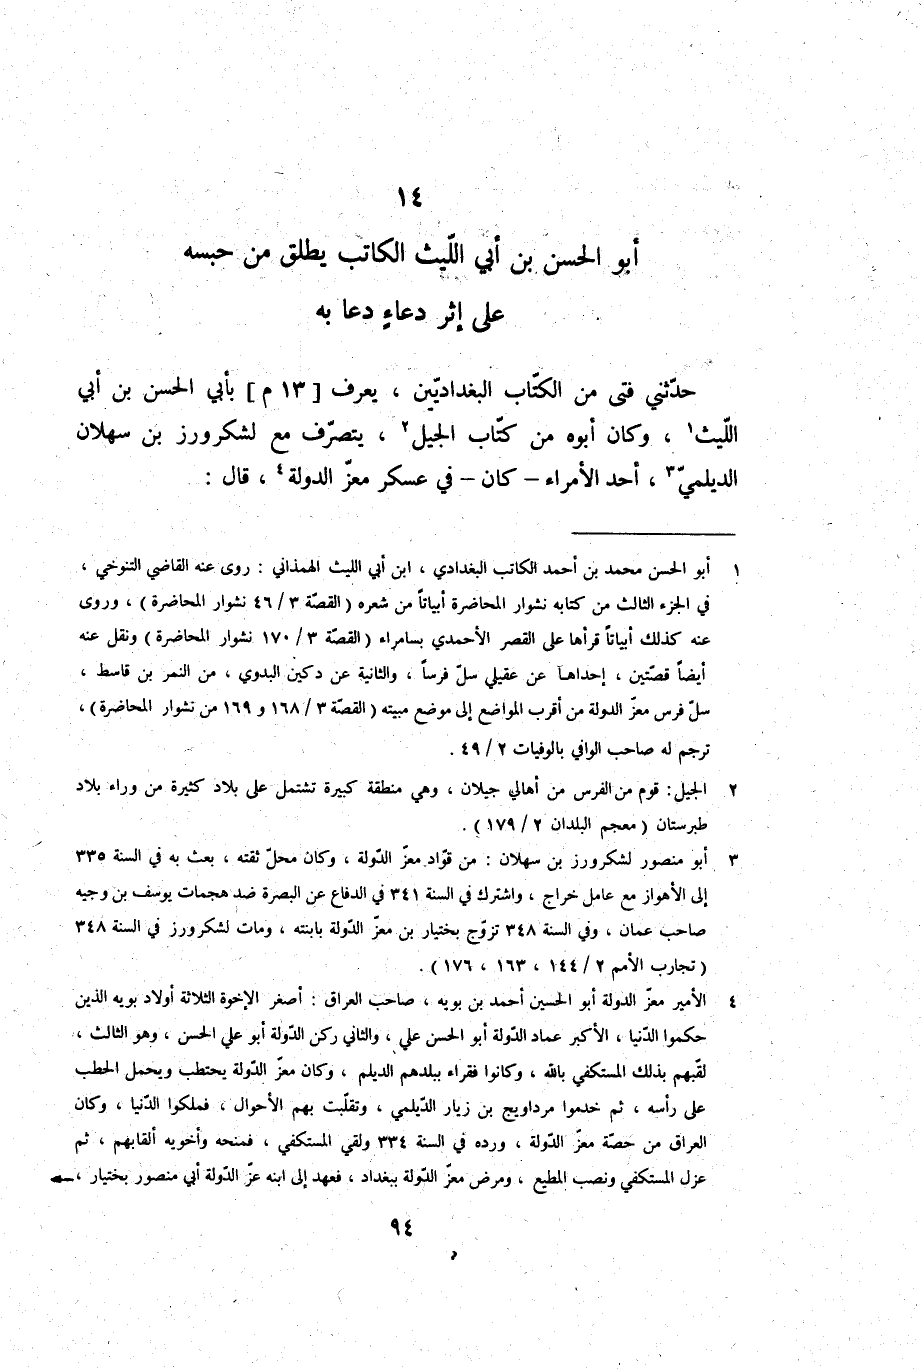 ١٤
أبو الحسن بن أبي اللّيث الكاتب يطلق من حبسه
على إثر دعاءٍ دعا به
حدّثني فتى من الكتّاب البغداديّين ، يعرف [ ١٣ م ] بأبي الحسن بن أبي
اللّيث١ ، وكان أبوه من كتّاب الجيل٢ ، يتصرّف مع لشكرورز بن سهلان
الديلميّ٣ ، أحد الأمراء – كان – في عسكر معزّ الدولة٤ ، قال :
١ أبو الحسن محمد بن أحمد الكاتب البغدادي ، ابن أبي الليث الهمذاني : روى عنه القاضي التنوخي ،
في الجزء الثالث من كتابه نشوار المحاضرة أبياتاً من شعره ( القصّة ٣ / ٤٦ نشوار المحاضرة ) ، وروى
عنه كذلك أبياتاً قرأها على القصر الأحمدي بسامراء ( القصّة ٣ / ١٧٠ نشوار المحاضرة ) ونقل عنه
أيضاً قصّتين ، إحداهما عن عقيلي سلّ فرساً ، والثانية عن دكين البدوي ، من النمر بن قاسط ،
سلّ فرس معزّ الدولة من أقرب المواضع إلى موضع مبيته ( القصّة ٣ / ١٦٨ و ١٦٩ من نشوار المحاضرة ) ،
ترجم له صاحب الوافي بالوفيات ٢ / ٤٩ .
٢ الجيل : قوم من الفرس من أهالي جيلان ، وهي منطقة كبيرة تشتمل على بلاد كثيرة من وراء بلاد
طبرستان ( معجم البلدان ٢ / ١٧٩ ) .
٣ أبو منصور لشكرورز بن سهلان : من قوّاد معزّ الدّولة ، وكان محلّ ثقته ، بعث به في السنة ٣٣٥
إلى الأهواز مع عامل خراج ، واشترك في السنة ٣٤١ في الدفاع عن البصرة ضد هجمات يوسف بن وجيه
صاحب عمان ، وفي السنة ٣٤٨ تزوّج بختيار بن معزّ الدّولة بابنته ، ومات لشكرورز في السنة ٣٤٨
( تجارب الأمم ٢ / ١٤٤ ، ١٦٣ ، ١٧٦ ) .
٤ الأمير معزّ الدولة أبو الحسين أحمد بن بويه ، صاحب العراق : أصغر الإخوة الثلاثة أولاد بويه الذين
حكموا الدّنيا ، الأكبر عماد الدّولة أبو الحسن علي ، والثاني ركن الدّولة أبو علي الحسن ، وهو الثالث ،
لقّبهم بذلك المستكفي بالله ، وكانوا فقراء ببلدهم الديلم ، وكان معزّ الدّولة يحتطب ويحمل الحطب
على رأسه ، ثم خدموا مرداويج بن زيار الدّيلمي ، وتقلّبت بهم الأحوال ، فملكوا الدّنيا ، وكان
العراق من حصّة معزّ الدّولة ، ورده في السنة ٣٣٤ ولقي المستكفي ، فمنحه وأخويه ألقابهم ، ثم
عزل المستكفي ونصب المطيع ، ومرض معزّ الدّولة ببغداد ، فعهد إلى ابنه عزّ الدّولة أبي منصور بختيار ، ←
٩٤